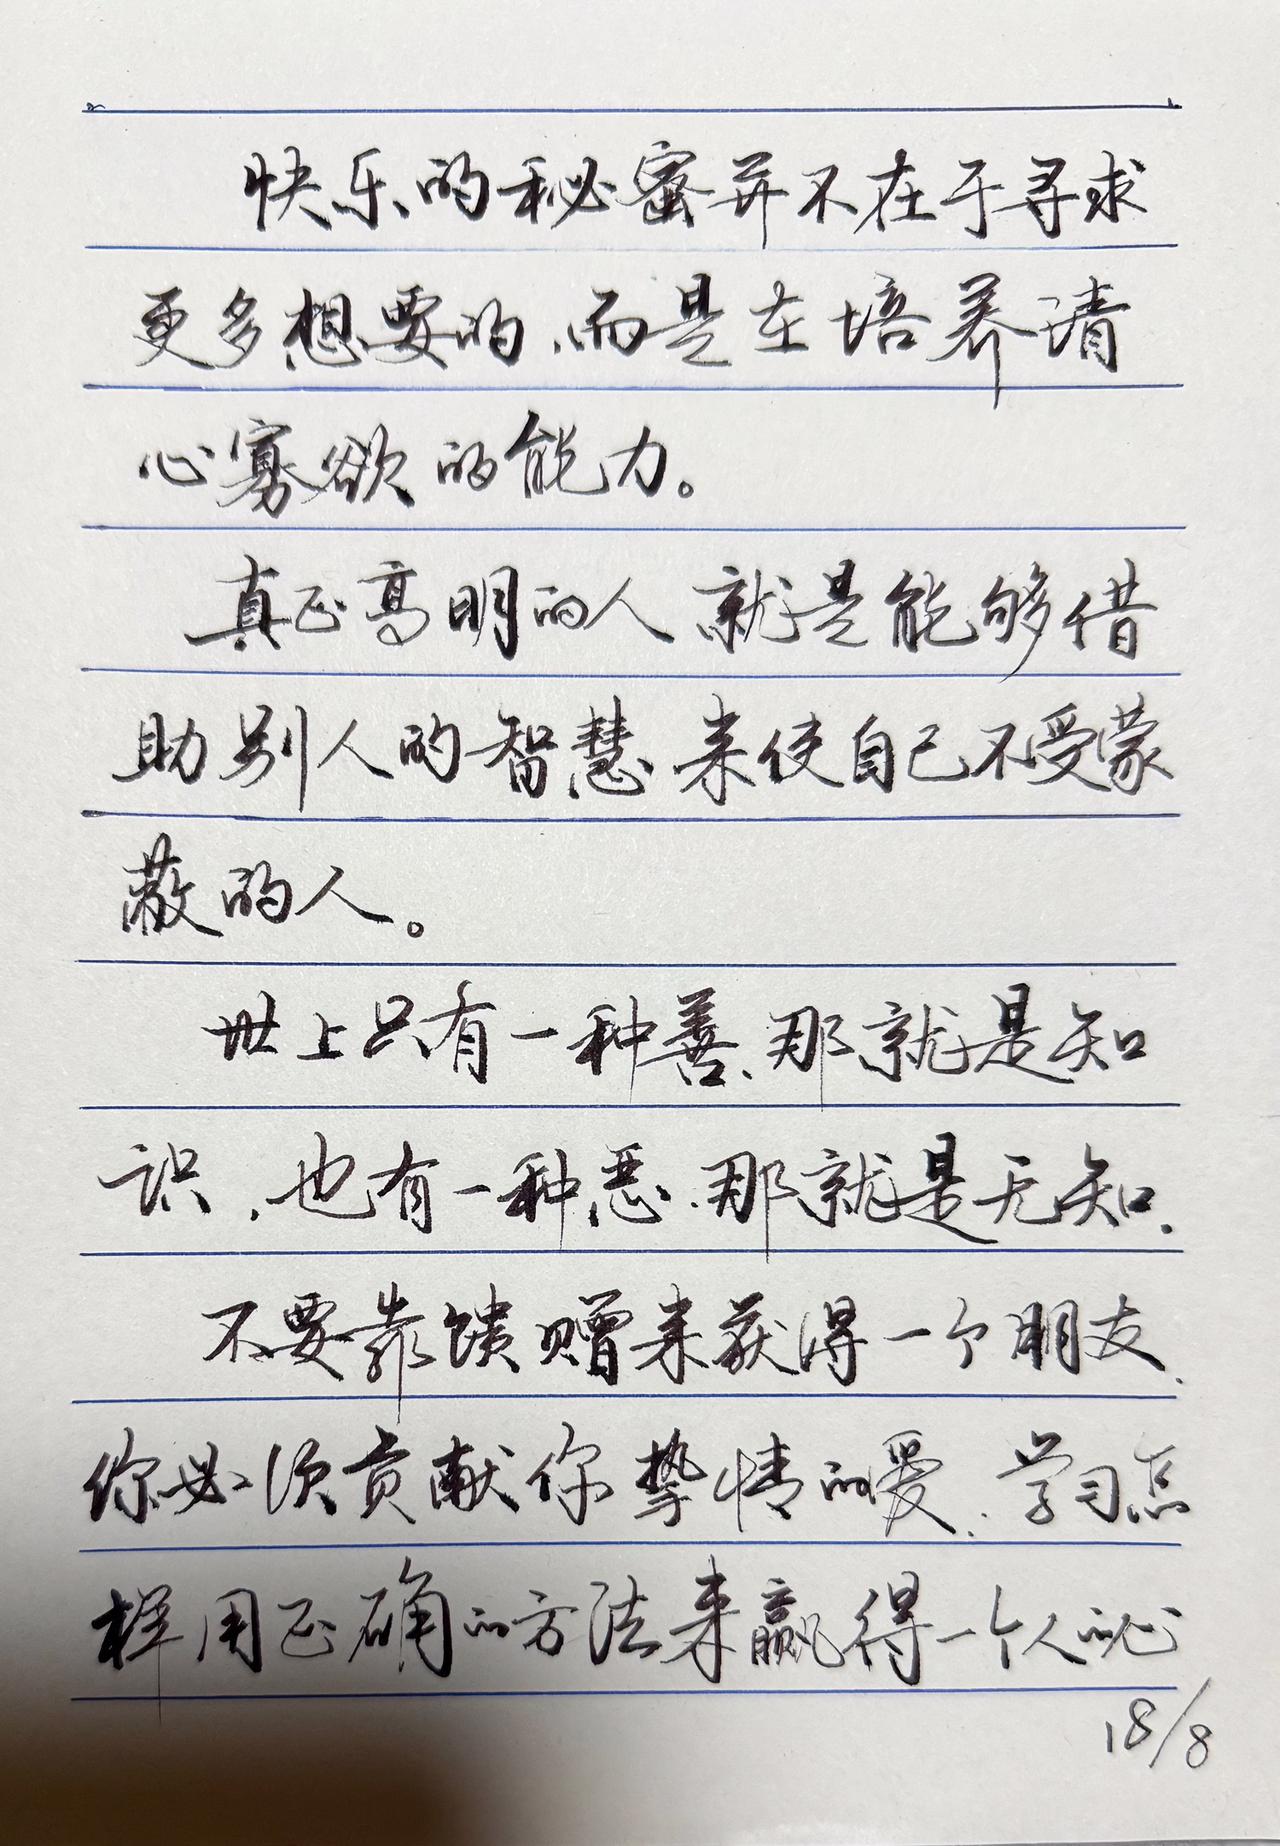 快乐的秘密并不在于寻求
更多想要的,而是在培养清
心寡欲的能力。
真正高明的人就是能够借
助别人的智慧,来使自己不受蒙
蔽的人。
世上只有一种善,那就是知
识,也有一种恶,那就是无知.
不要靠馈赠来获得一个朋友.
你必须贡献你挚情的爱.学习怎
样用正确的方法来赢得一个人的心
18/8